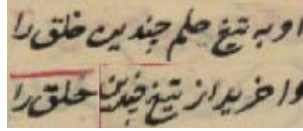 او به تیغ حلم چندین خلق را
وا خرید از تیغ چندین حلق را